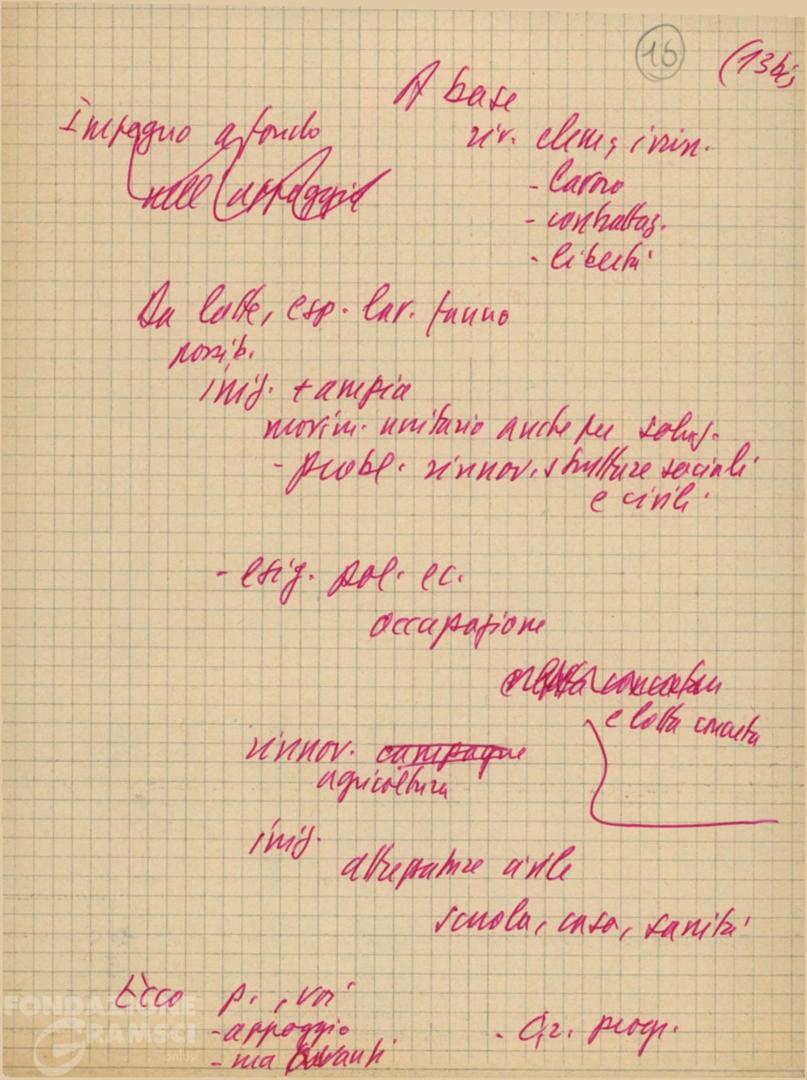 16
(13bis
A base
Impegno a fondo
riv. elem, imm.
nell'appoggio
- lavoro
- contrattaz.
- libertà
Da lotte, esp. lav. fanno
possib.
iniz. + ampia
movim. unitario anche per soluz.
- probl. rinnov. strutture sociali
e civili
- esig. pol. ec.
occupazione
e lotta concreta
rinnov. campagne
agricoltura
iniz.
attrezzature civile
scuola, casa, sanità
Ecco p. , voi
- appoggio
- ma avanti
- Gr. progr.
FONDAZIONE
GRAMSCI
onlus